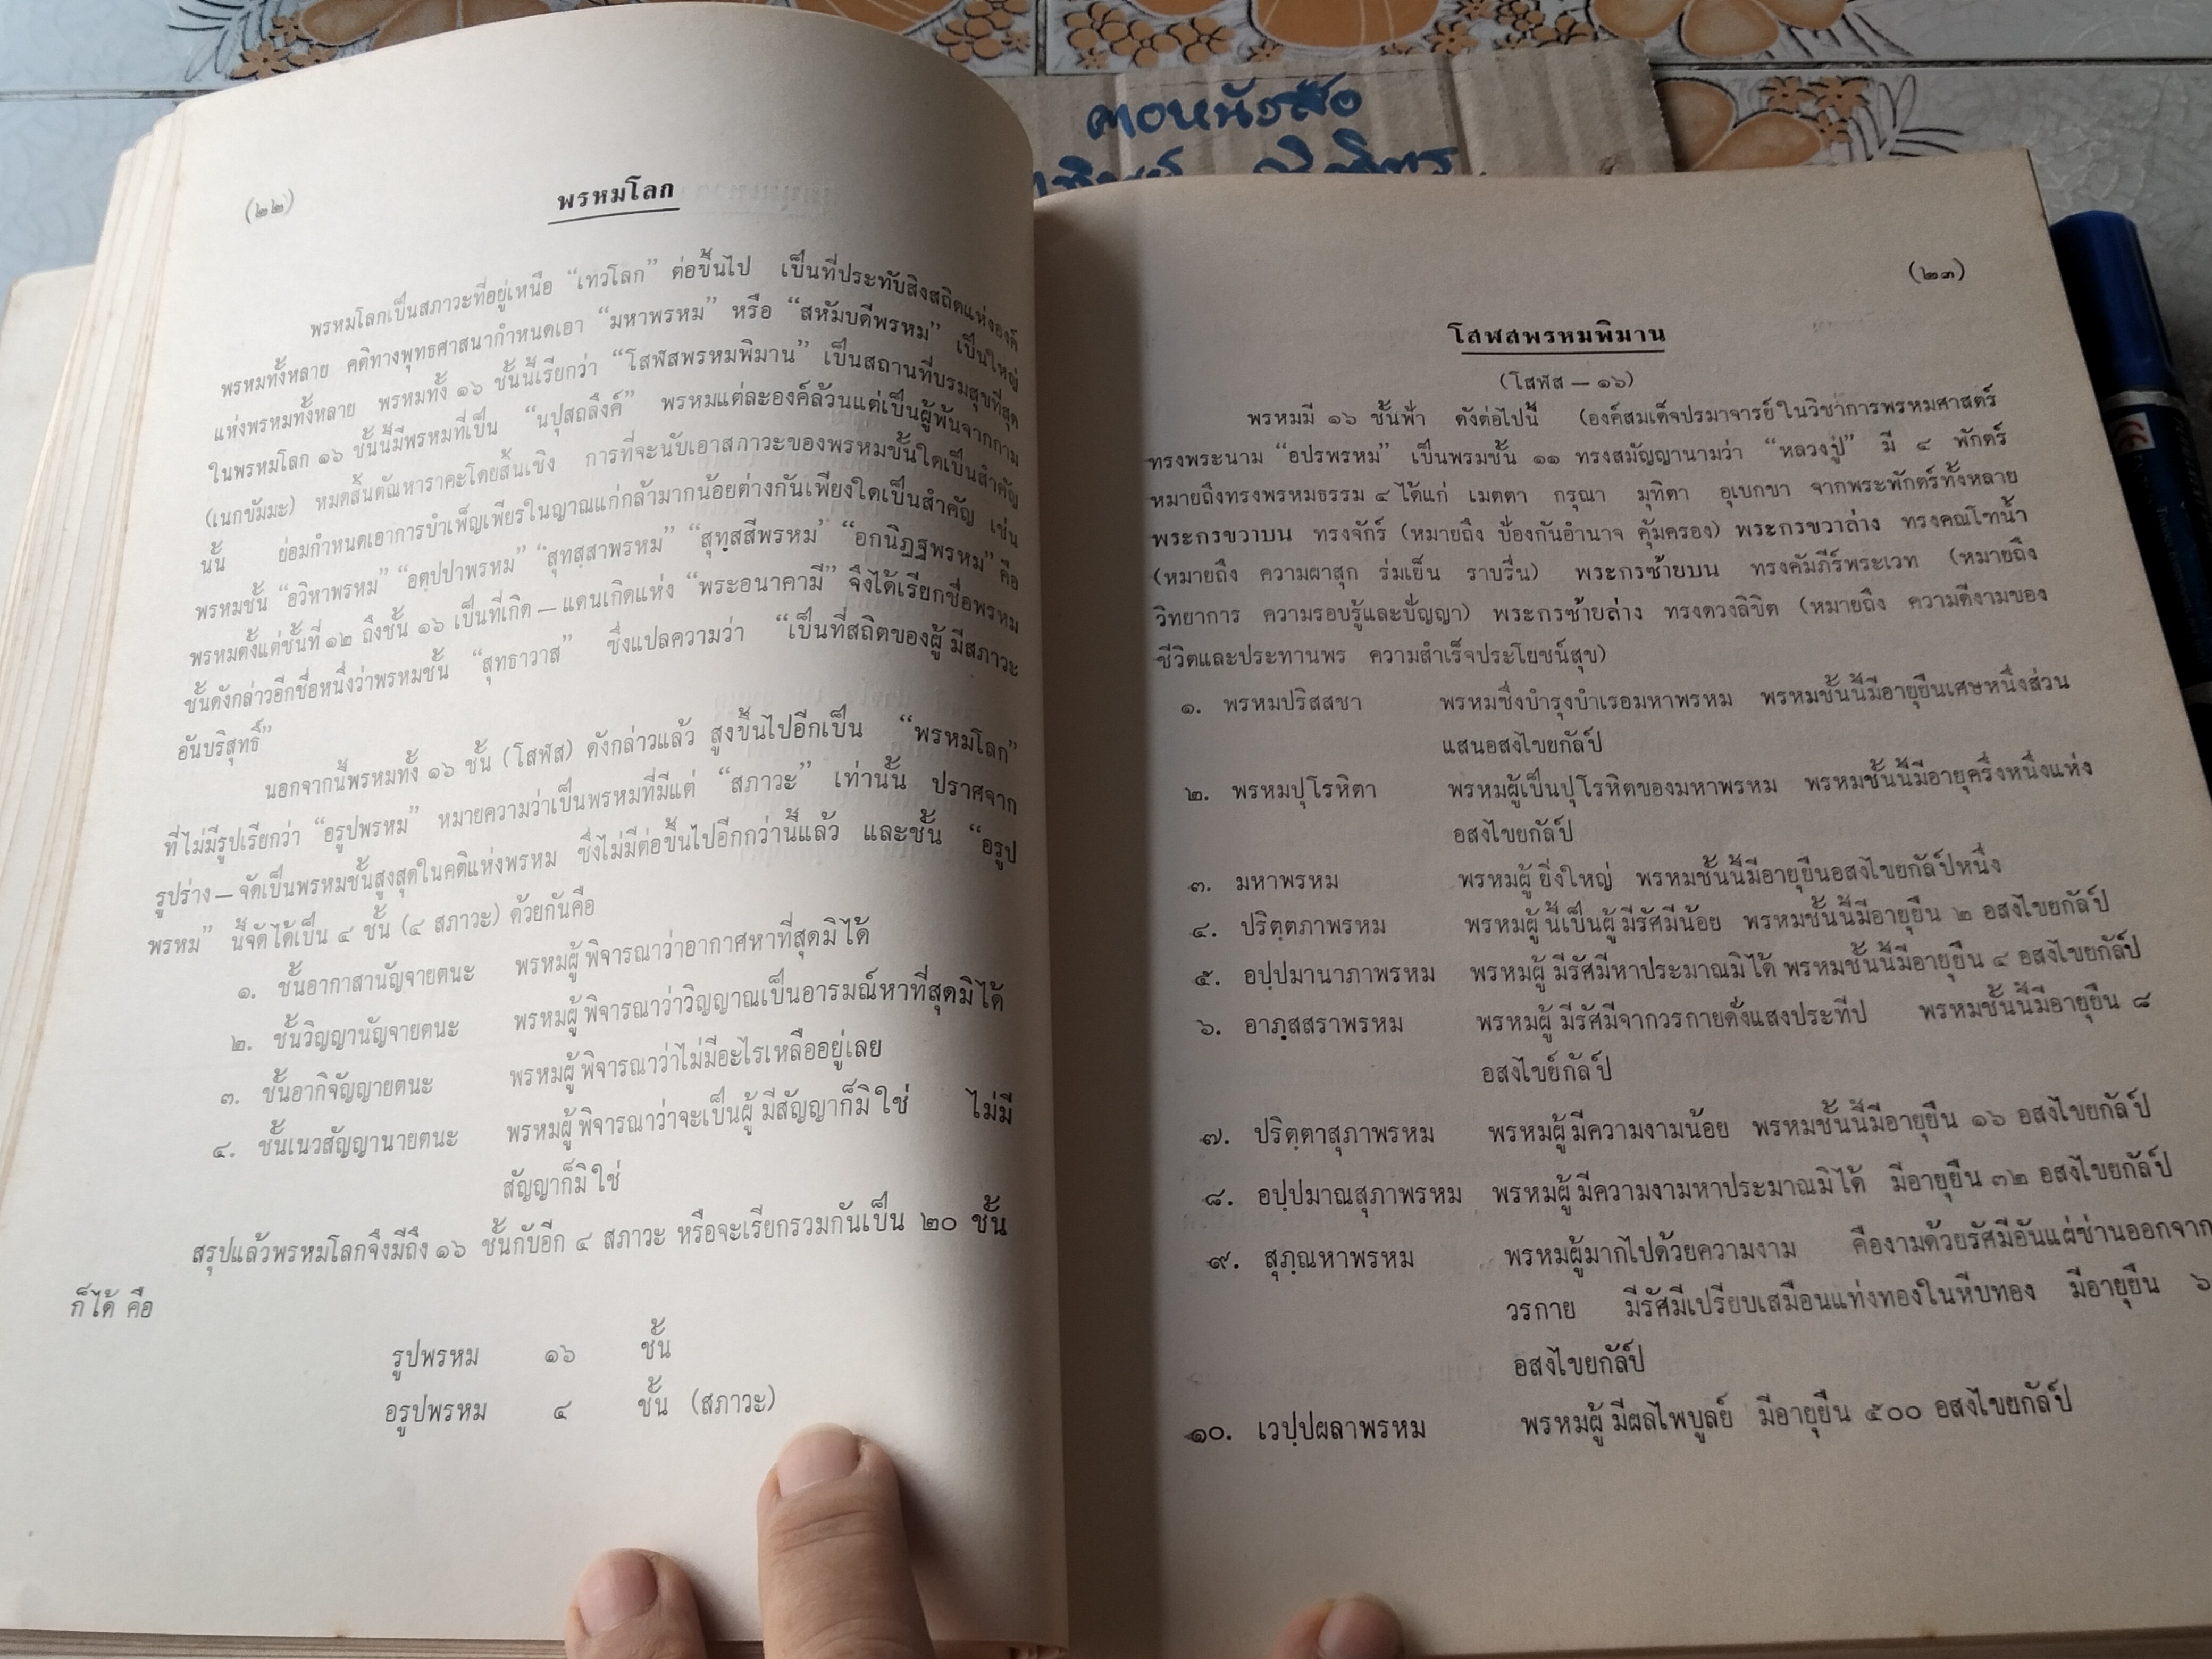 คอหนังสือ
(๒๒)
พรหมโลก
พรหมโลกเป็นสภาวะที่อยู่เหนือ “เทวโลก” ต่อขึ้นไป เป็นที่ประทับสิงสถิตแห่งองค์
พรหมทั้งหลาย คติทางพุทธศาสนากำหนดเอา “มหาพรหม” หรือ “สหัมบดีพรหม” เป็นใหญ่
แห่งพรหมทั้งหลาย พรหมทั้ง ๑๖ ชั้นนี้เรียกว่า “โสฬสพรหมพิมาน” เป็นสถานที่บรมสุขที่สุด
ในพรหมโลก ๑๖ ชั้นนี้มีพรหมที่เป็น “นปุสถลิงค์” พรหมแต่ละองค์ล้วนแต่เป็นผู้พ้นจากกาม
(เนกขัมมะ) หมดสิ้นตัณหาราคะโดยสิ้นเชิง การที่จะนับเอาสภาวะของพรหมชั้นใดเป็นสำคัญ
นั้น ย่อมกำหนดเอาการบำเพ็ญเพียรในญาณแก่กล้ามากน้อยต่างกันเพียงใดเป็นสำคัญ เช่น
พรหมชั้น “อวิหาพรหม” “อตฺปปาพรหม” “สุทสฺสาพรหม” “สุทฺสสีพรหม” “อกนิฏฐพรหม” คือ
พรหมตั้งแต่ชั้นที่ ๑๒ ถึงชั้น ๑๖ เป็นที่เกิด — แดนเกิดแห่ง “พระอนาคามี” จึงได้เรียกชื่อพรหม
ชั้นดังกล่าวอีกชื่อหนึ่งว่าพรหมชั้น “สุทธาวาส” ซึ่งแปลความว่า “เป็นที่สถิตของผู้มีสภาวะ
อันบริสุทธิ์”
นอกจากนี้พรหมทั้ง ๑๖ ชั้น (โสฬส) ดังกล่าวแล้ว สูงขึ้นไปอีกเป็น “พรหมโลก”
ที่ไม่มีรูปเรียกว่า “อรูปพรหม” หมายความว่าเป็นพรหมที่มีแต่ “สภาวะ” เท่านั้น ปราศจาก
รูปร่าง — จัดเป็นพรหมชั้นสูงสุดในคติแห่งพรหม ซึ่งไม่มีต่อขึ้นไปอีกกว่านี้แล้ว และชั้น “อรูป
พรหม” นี้จัดได้เป็น ๔ ชั้น (๔ สภาวะ) ด้วยกันคือ
๑. ชั้นอากาสานัญจายตนะ พรหมผู้พิจารณาว่าอากาศหาที่สุดมิได้
๒. ชั้นวิญญานัญจายตนะ พรหมผู้พิจารณาว่าวิญญาณเป็นอารมณ์หาที่สุดมิได้
๓. ชั้นอากิจัญญายตนะ พรหมผู้พิจารณาว่าไม่มีอะไรเหลืออยู่เลย
๔. ชั้นเนวสัญญานายตนะ พรหมผู้พิจารณาว่าจะเป็นผู้มีสัญญาก็มิใช่ ไม่มี
สัญญาก็มิใช่
สรุปแล้วพรหมโลกจึงมีถึง ๑๖ ชั้นกับอีก ๔ สภาวะ หรือจะเรียกรวมกันเป็น ๒๐ ชั้น
ก็ได้ คือ
รูปพรหม ๑๖ ชั้น
อรูปพรหม ๔ ชั้น (สภาวะ)
(๒๓)
โสฬสพรหมพิมาน
(โสฬส — ๑๖)
พรหมมี ๑๖ ชั้นฟ้า ดังต่อไปนี้ (องค์สมเด็จปรมาจารย์ในวิชาการพรหมศาสตร์
ทรงพระนาม “อปรพรหม” เป็นพรมชั้น ๑๑ ทรงสมัญญานามว่า “หลวงปู่” มี ๔ พักตร์
หมายถึงทรงพรหมธรรม ๔ ได้แก่ เมตตา กรุณา มุทิตา อุเบกขา จากพระพักตร์ทั้งหลาย
พระกรขวาบน ทรงจักร์ (หมายถึง ป้องกันอำนาจ คุ้มครอง) พระกรขวาล่าง ทรงคณโทน้ำ
(หมายถึง ความผาสุก ร่มเย็น ราบรื่น) พระกรซ้ายบน ทรงคัมภีร์พระเวท (หมายถึง
วิทยาการ ความรอบรู้และปัญญา) พระกรซ้ายล่าง ทรงดวงลิขิต (หมายถึง ความดีงามของ
ชีวิตและประทานพร ความสำเร็จประโยชน์สุข)
๑. พรหมปริสสชา พรหมซึ่งบำรุงบำเรอมหาพรหม พรหมชั้นนี้มีอายุยืนเศษหนึ่งส่วน
แสนอสงไขยกัล์ป
๒. พรหมปุโรหิตา พรหมผู้เป็นปุโรหิตของมหาพรหม พรหมชั้นนี้มีอายุครึ่งหนึ่งแห่ง
อสงไขยกัล์ป
๓. มหาพรหม พรหมผู้ยิ่งใหญ่ พรหมชั้นนี้มีอายุยืนอสงไขยกัล์ปหนึ่ง
๔. ปริตฺตภาพรหม พรหมผู้นี้เป็นผู้มีรัศมีน้อย พรหมชั้นนี้มีอายุยืน ๒ อสงไขยกัล์ป
๕. อปฺปมานาภาพรหม พรหมผู้มีรัศมีหาประมาณมิได้ พรหมชั้นนี้มีอายุยืน ๔ อสงไขยกัล์ป
๖. อาภฺสสราพรหม พรหมผู้มีรัศมีจากวรกายดั่งแสงประทีป พรหมชั้นนี้มีอายุยืน ๘
อสงไขย์กัล์ป
๗. ปริตฺตาสุภาพรหม พรหมผู้มีความงามน้อย พรหมชั้นนี้มีอายุยืน ๑๖ อสงไขยกัล์ป
๘. อปฺปมาณสุภาพรหม พรหมผู้มีความงามหาประมาณมิได้ มีอายุยืน ๓๒ อสงไขยกัล์ป
๙. สุภฺณหาพรหม พรหมผู้มากไปด้วยความงาม คืองามด้วยรัศมีอันแผ่ซ่านออกจาก
วรกาย มีรัศมีเปรียบเสมือนแท่งทองในหีบทอง มีอายุยืน ๖
อสงไขยกัล์ป
๑๐. เวปฺปผลาพรหม พรหมผู้มีผลไพบูลย์ มีอายุยืน ๕๐๐ อสงไขยกัล์ป